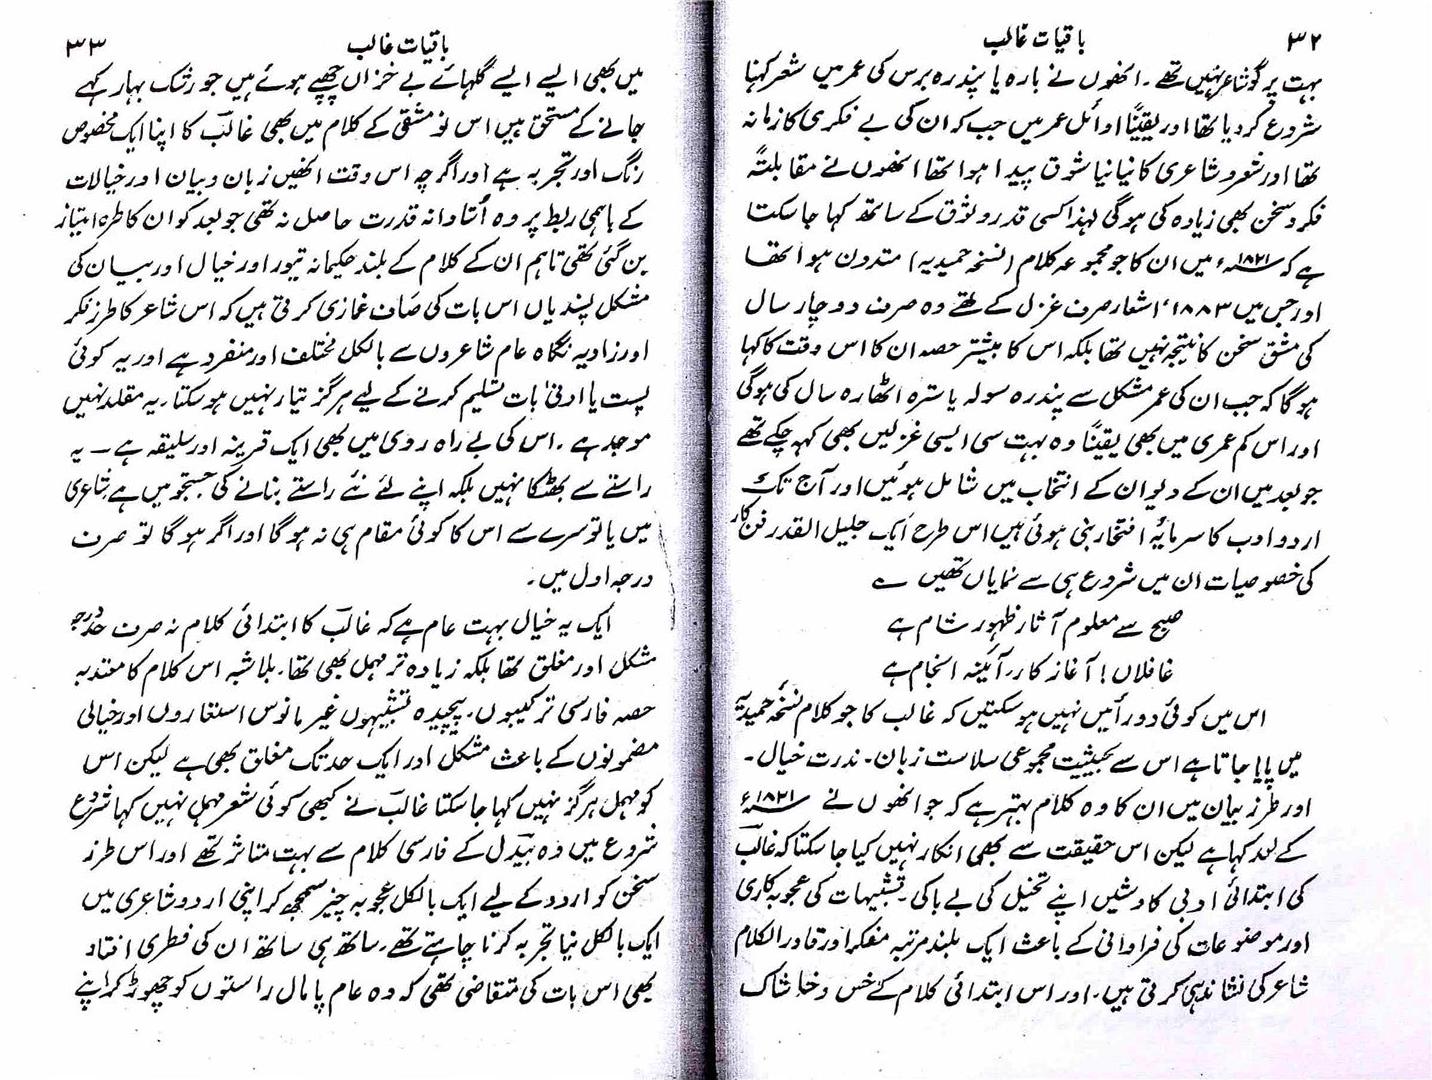 ۳۲
باقیات غالب
بہت پرگو شاعر نہیں تھے۔ انھوں نے بارہ یا پندرہ برس کی عمر میں شعر کہنا
شروع کر دیا تھا اور یقیناً اوائل عمر میں جب کہ ان کی بے فکری کا زمانہ
تھا اور شعر و شاعری کا نیا نیا شوق پیدا ہوا تھا انھوں نے مقابلتہً
فکر و سخن بھی زیادہ کی ہوگی لہٰذا کسی قدر وثوق کے ساتھ کہا جا سکتا
ہے کہ ۱۸۲۱ء میں ان کا جو مجموعہ کلام (نسخہ حمیدیہ) مدون ہوا تھا
اور جس میں ۱۸۸۳، اشعار صرف غزل کے تھے وہ صرف دو چار سال
کی مشق سخن کا نتیجہ نہیں تھا بلکہ اس کا بیشتر حصہ ان کا اس وقت کا کہا
ہوگا کہ جب ان کی عمر مشکل سے پندرہ سولہ یا سترہ اٹھارہ سال کی ہوگی
اور اس کم عمری میں بھی یقیناً وہ بہت سی ایسی غزلیں بھی کہہ چکے تھے
جو بعد میں ان کے دیوان کے انتخاب میں شامل ہوئیں اور آج تک
اردو ادب کا سرمایۂ افتخار بنی ہوئی ہیں اس طرح ایک جلیل القدر فن کار
کی خصوصیات ان میں شروع ہی سے نمایاں تھیں ؎
صبح سے معلوم آثار ظہور شام ہے
غافلاں! آغاز کار، آئینہ انجام ہے
اس میں کوئی دو رائیں نہیں ہو سکتیں کہ غالب کا جو کلام نسخۂ حمیدیہ
میں پایا جاتا ہے اس سے بحیثیت مجموعی سلاست زبان۔ ندرت خیال۔
اور طرز بیان میں ان کا وہ کلام بہتر ہے کہ جو انھوں نے ۱۸۲۱ء
کے بعد کہا ہے لیکن اس حقیقت سے بھی انکار نہیں کیا جا سکتا کہ غالبؔ
کی ابتدائی ادبی کاوشیں اپنے تخیل کی بے باکی۔ تشبیہات کی عجوبہ کاری
اور موضوعات کی فراوانی کے باعث ایک بلند مرتبہ مفکر اور قادر الکلام
شاعر کی نشاندہی کرتی ہیں۔ اور اس ابتدائی کلام کے خس و خاشاک
۳۳
باقیات غالب
میں بھی ایسے ایسے گلہائے بے خزاں چھپے ہوئے ہیں جو رشک بہار کہے
جانے کے مستحق ہیں اس نو مشقی کے کلام میں بھی غالبؔ کا اپنا ایک مخصوص
رنگ اور تجربہ ہے اور اگرچہ اس وقت انھیں زبان و بیان اور خیالات
کے باہمی ربط پر وہ اُستادانہ قدرت حاصل نہ تھی جو بعد کو ان کا طرہ امتیاز
بن گئی تھی تاہم ان کے کلام کے بلند حکیمانہ تیور اور خیال اور بیان کی
مشکل پسندیاں اس بات کی صاف غمازی کرتی ہیں کہ اس شاعر کا طرز فکر
اور زاویہ نگاہ عام شاعروں سے بالکل مختلف اور منفرد ہے اور یہ کوئی
پست یا ادنیٰ بات تسلیم کرنے کے لیے ہرگز تیار نہیں ہو سکتا۔ یہ مقلد نہیں
موجد ہے۔ اس کی بے راہ روی میں بھی ایک قرینہ اور سلیقہ ہے — یہ
راستے سے بھٹکا نہیں بلکہ اپنے لئے نئے راستے بنانے کی جستجو میں ہے شاعری
میں یا تو سرے سے اس کا کوئی مقام ہی نہ ہوگا اور اگر ہوگا تو صرف
درجہ اول میں۔
ایک یہ خیال بہت عام ہے کہ غالبؔ کا ابتدائی کلام نہ صرف حد درجہ
مشکل اور مغلق تھا بلکہ زیادہ تر مہمل بھی تھا۔ بلاشبہ اس کلام کا معتدبہ
حصہ فارسی ترکیبوں۔ پیچیدہ تشبیہوں غیر مانوس استعاروں اور خیالی
مضمونوں کے باعث مشکل اور ایک حد تک مغلق بھی ہے لیکن اس
کو مہمل ہرگز نہیں کہا جا سکتا غالبؔ نے کبھی کوئی شعر مہمل نہیں کہا شروع
شروع میں وہ بیدلؔ کے فارسی کلام سے بہت متاثر تھے اور اس طرز
سخن کو اردو کے لیے ایک بالکل عجوبہ چیز سمجھ کر اپنی اردو شاعری میں
ایک بالکل نیا تجربہ کرنا چاہتے تھے۔ ساتھ ہی ساتھ ان کی فطری افتاد
بھی اس بات کی متقاضی تھی کہ وہ عام پامال راستوں کو چھوڑ کر اپنے